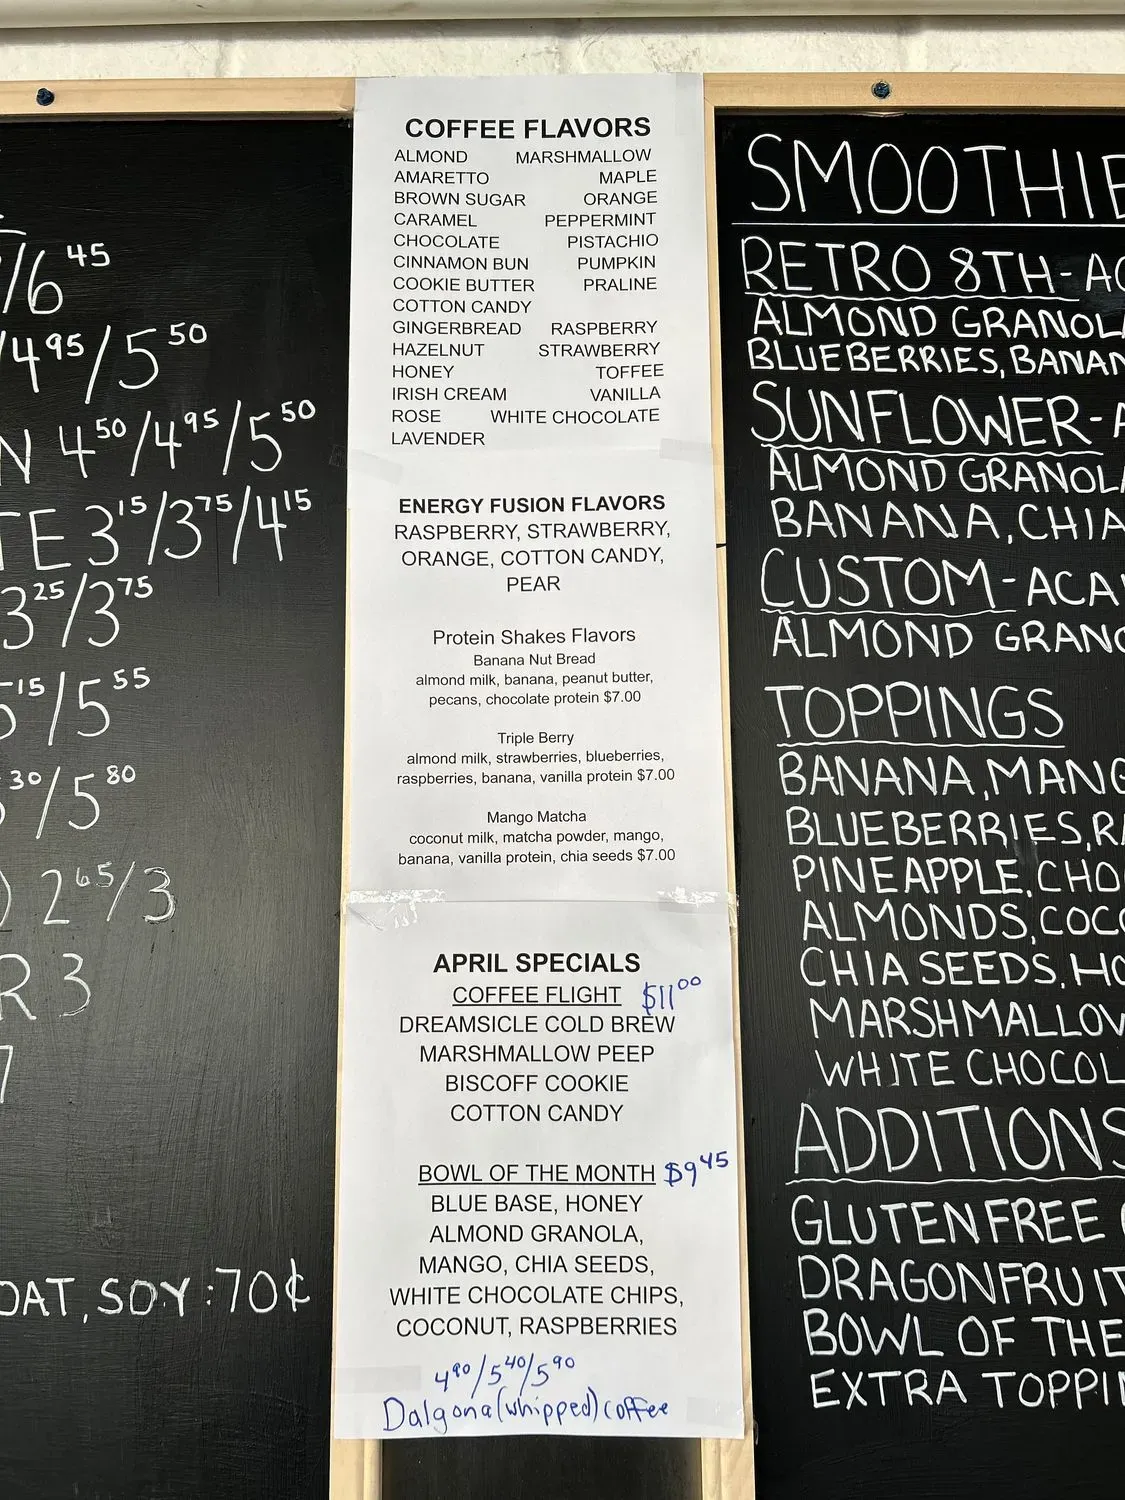 45
/6
/4 95/5 50
N 4 50/4 95/5 50
TE 3 15/3 75/4 15
3 25/3 75
15/5 55
30/5 80
2 65/3
R 3
7
OAT, SOY : 70¢
COFFEE FLAVORS
ALMOND MARSHMALLOW
AMARETTO MAPLE
BROWN SUGAR ORANGE
CARAMEL PEPPERMINT
CHOCOLATE PISTACHIO
CINNAMON BUN PUMPKIN
COOKIE BUTTER PRALINE
COTTON CANDY
GINGERBREAD RASPBERRY
HAZELNUT STRAWBERRY
HONEY TOFFEE
IRISH CREAM VANILLA
ROSE WHITE CHOCOLATE
LAVENDER
ENERGY FUSION FLAVORS
RASPBERRY, STRAWBERRY,
ORANGE, COTTON CANDY,
PEAR
Protein Shakes Flavors
Banana Nut Bread
almond milk, banana, peanut butter,
pecans, chocolate protein $7.00
Triple Berry
almond milk, strawberries, blueberries,
raspberries, banana, vanilla protein $7.00
Mango Matcha
coconut milk, matcha powder, mango,
banana, vanilla protein, chia seeds $7.00
APRIL SPECIALS
COFFEE FLIGHT $11 00
DREAMSICLE COLD BREW
MARSHMALLOW PEEP
BISCOFF COOKIE
COTTON CANDY
BOWL OF THE MONTH $9 45
BLUE BASE, HONEY
ALMOND GRANOLA,
MANGO, CHIA SEEDS,
WHITE CHOCOLATE CHIPS,
COCONUT, RASPBERRIES
4 90/5 40/5 90
Dalgona (whipped) coffee
SMOOTHIE
RETRO 8TH- AC
ALMOND GRANOL
BLUEBERRIES, BANAN
SUNFLOWER- A
ALMOND GRANOL
BANANA, CHIA
CUSTOM- ACA
ALMOND GRANO
TOPPINGS
BANANA, MANG
BLUEBERRIES, R
PINEAPPLE, CHO
ALMONDS, COCO
CHIA SEEDS, HO
MARSHMALLOW
WHITE CHOCOL
ADDITIONS
GLUTEN FREE
DRAGONFRUIT
BOWL OF THE
EXTRA TOPPIN